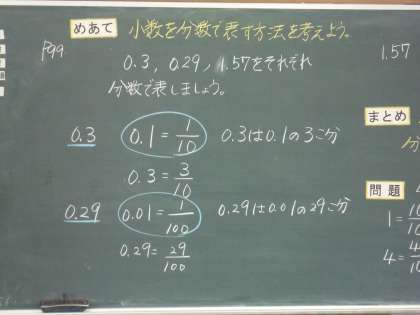 P99
めあて 小数を分数で表す方法を考えよう。
0.3, 0.29, 1.57をそれぞれ
分数で表しましょう。
0.3 0.1 = 1/10 0.3は0.1の3こ分
0.3 = 3/10
0.29 0.01 = 1/100 0.29は0.01の29こ分
0.29 = 29/100
1.57
まとめ
分
問題
1 = 10/10
4 = 4